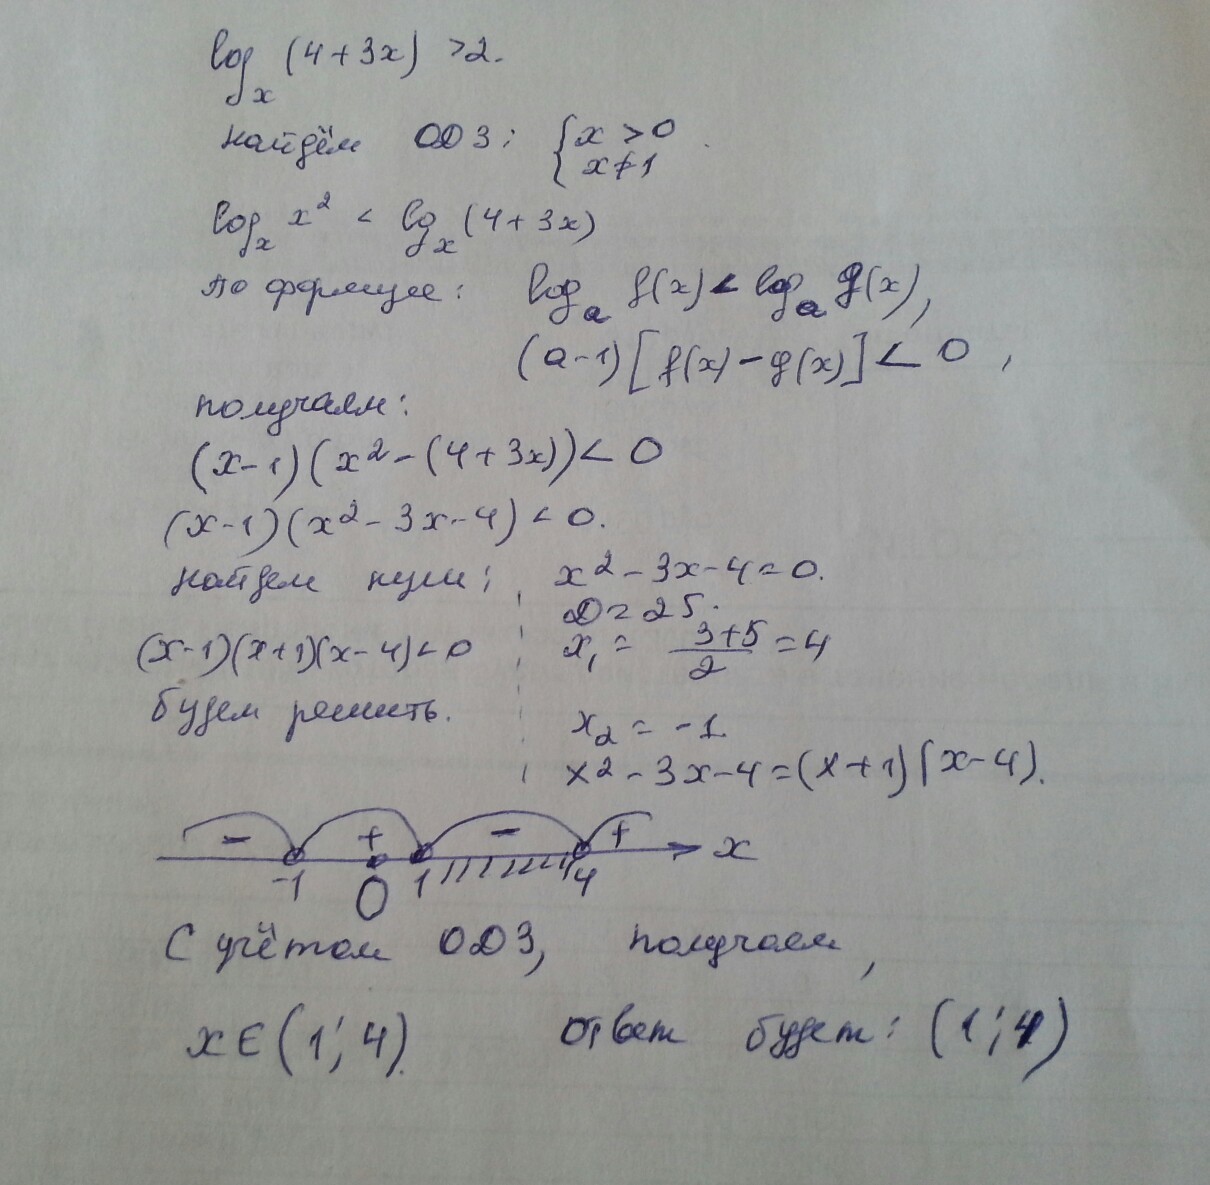 log_x (4+3x) >2.
найдём ОДЗ: { x >0
x≠1
log_x x² < log_x (4+3x)
по формуле: log_a f(x) < log_a g(x),
(a-1)[f(x) - g(x)] < 0,
получаем:
(x-1)(x² - (4+3x)) < 0
(x-1)(x² - 3x - 4) < 0.
найдем нули; x² - 3x - 4 = 0.
D = 25.
(x-1)(x+1)(x-4) < 0 x₁ = (3+5)/2 = 4
будем решить. x₂ = -1.
x² - 3x - 4 = (x+1)(x-4).
- + - + x
-1 0 1 4
С учётом ОДЗ, получаем,
x∈(1; 4). ответ будет: (1; 4)